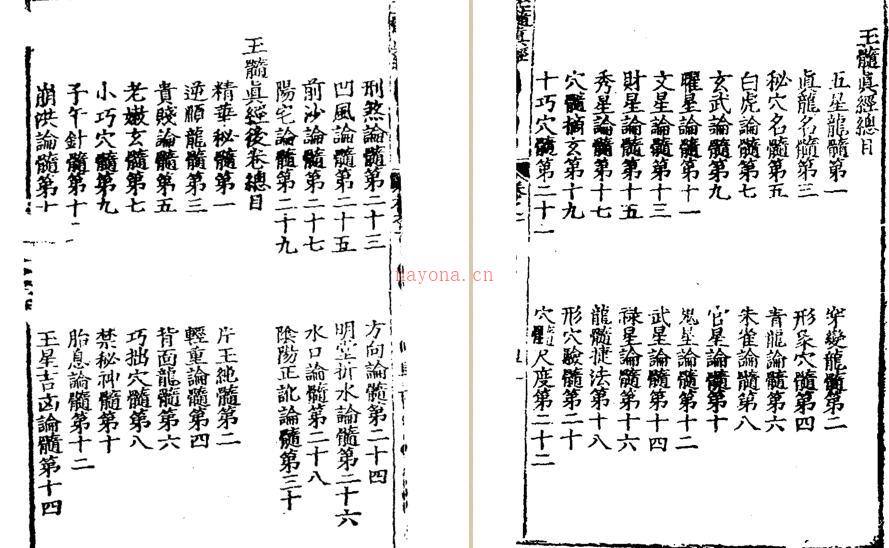 玉髓眞經總目
五星龍髓第一
穿變龍髓第二
眞龍名髓第三
形象穴髓第四
秘穴名髓第五
青龍論髓第六
白虎論髓第七
朱雀論髓第八
玄武論髓第九
官星論髓第十
曜星論髓第十一
鬼星論髓第十二
文星論髓第十三
武星論髓第十四
財星論髓第十五
祿星論髓第十六
秀星論髓第十七
龍髓捷法第十八
穴髓摘玄第十九
形穴驗髓第二十
十巧穴髓第二十一
穴髓尺度第二十二
刑煞論髓第二十三
方向論髓第二十四
凹風論髓第二十五
明堂折水論髓第二十六
前沙論髓第二十七
水口論髓第二十八
陽宅論髓第二十九
陰陽正訛論髓第三十
玉髓眞經後卷總目
精華秘髓第一
片玉純髓第二
逆順龍髓第三
輕重論髓第四
貴賤論髓第五
背面龍髓第六
老嫩玄髓第七
巧拙穴髓第八
小巧穴髓第九
禁秘神髓第十
子午針髓第十一
胎息論髓第十二
崩洪論髓第十
玉星吉凶論髓第十四
nayona.cn